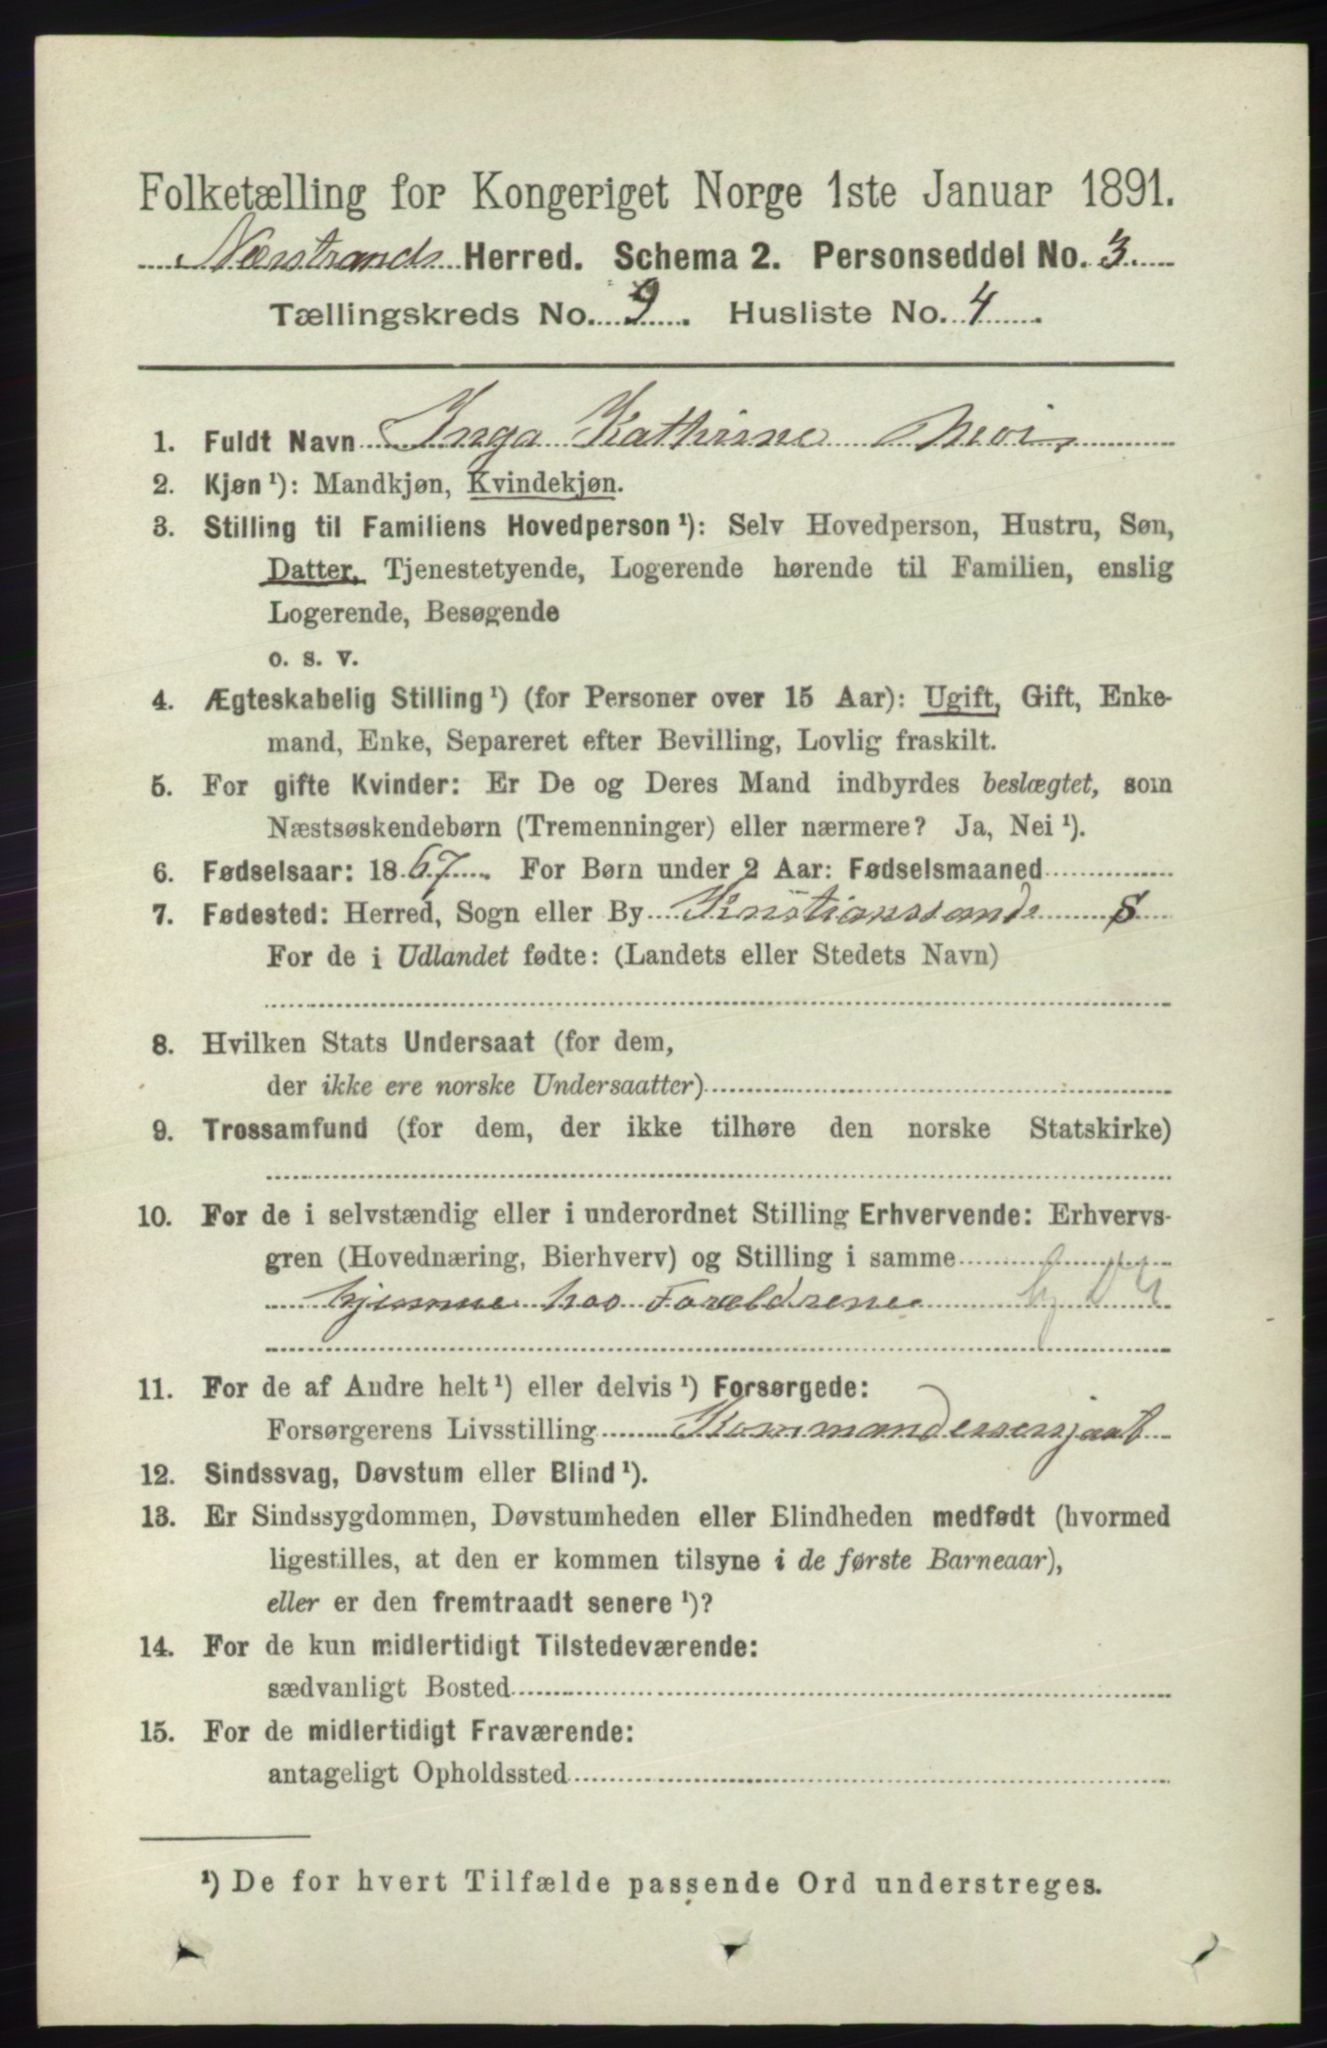 Folketælling for Kongeriget Norge 1ste Januar 1891.
Nærstrands Herred. Schema 2. Personseddel No. 3
Tællingskreds No. 9. Husliste No. 4.
1. Fuldt Navn Inga Kathrine Moi,
2. Kjøn ¹): Mandkjøn, Kvindekjøn.
3. Stilling til Familiens Hovedperson ¹): Selv Hovedperson, Hustru, Søn,
Datter, Tjenestetyende, Logerende hørende til Familien, enslig
Logerende, Besøgende
o. s. v.
4. Ægteskabelig Stilling ¹) (for Personer over 15 Aar): Ugift, Gift, Enke-
mand, Enke, Separeret efter Bevilling, Lovlig fraskilt.
5. For gifte Kvinder: Er De og Deres Mand indbyrdes beslægtet, som
Næstsøskendebørn (Tremenninger) eller nærmere? Ja, Nei ¹).
6. Fødselsaar: 1867. For Børn under 2 Aar: Fødselsmaaned
7. Fødested: Herred, Sogn eller By Kristianssand S
For de i Udlandet fødte: (Landets eller Stedets Navn)
8. Hvilken Stats Undersaat (for dem,
der ikke ere norske Undersaatter)
9. Trossamfund (for dem, der ikke tilhøre den norske Statskirke)
10. For de i selvstændig eller i underordnet Stilling Erhvervende: Erhvervs-
gren (Hovednæring, Bierhverv) og Stilling i samme
hjemme hos Forældrene
11. For de af Andre helt ¹) eller delvis ¹) Forsørgede:
Forsørgerens Livsstilling Kommandersersjant
12. Sindssvag, Døvstum eller Blind ¹).
13. Er Sindssygdommen, Døvstumheden eller Blindheden medfødt (hvormed
ligestilles, at den er kommen tilsyne i de første Barneaar),
eller er den fremtraadt senere ¹)?
14. For de kun midlertidigt Tilstedeværende:
sædvanligt Bosted
15. For de midlertidigt Fraværende:
antageligt Opholdssted
¹) De for hvert Tilfælde passende Ord understreges.